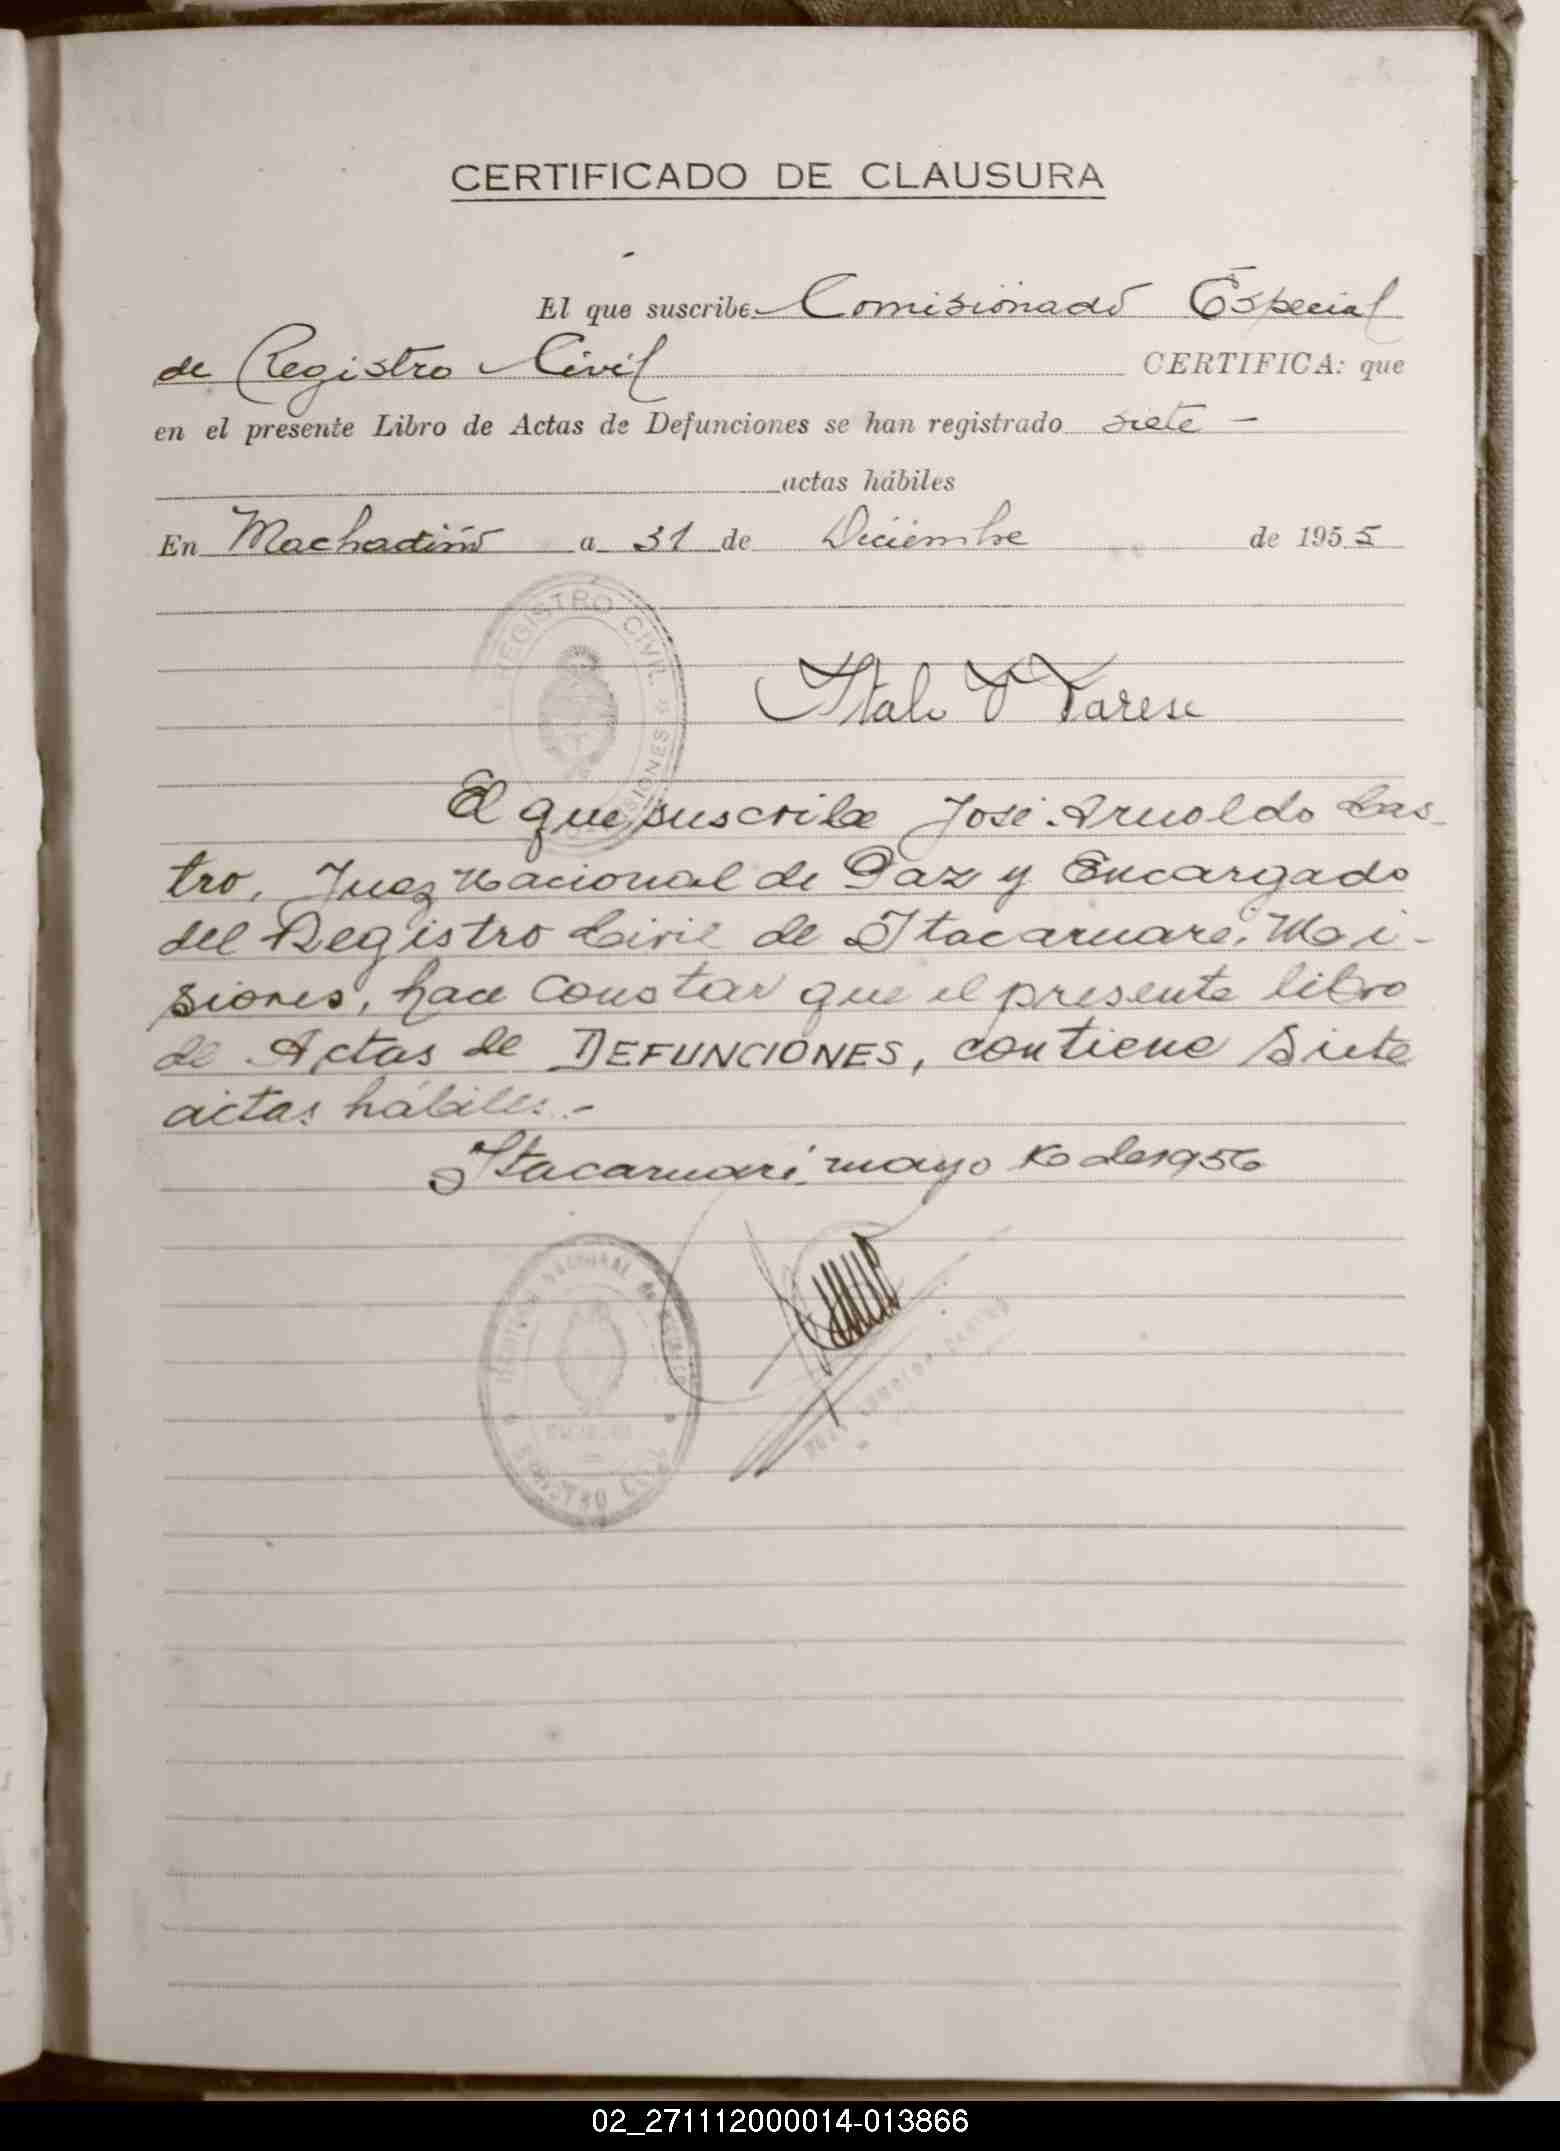 CERTIFICADO DE CLAUSURA
El que suscribe Comisionado Especial
de Registro Civil CERTIFICA: que
en el presente Libro de Actas de Defunciones se han registrado siete –
actas hábiles
En Machadiño a 31 de Diciembre de 1955
REGISTRO CIVIL
MISIONES
Italo V Varese
El que suscribe José Arnoldo Cas-
tro, Juez Nacional de Paz y Encargado
del Registro Civil de Itacaruaré, Mi-
siones, hace constar que el presente libro
de Actas de DEFUNCIONES, contiene Siete
actas hábiles.-
Itacaruaré, mayo de 1956
NACIONAL de
REGISTRO CIVIL
02_271112000014-013866